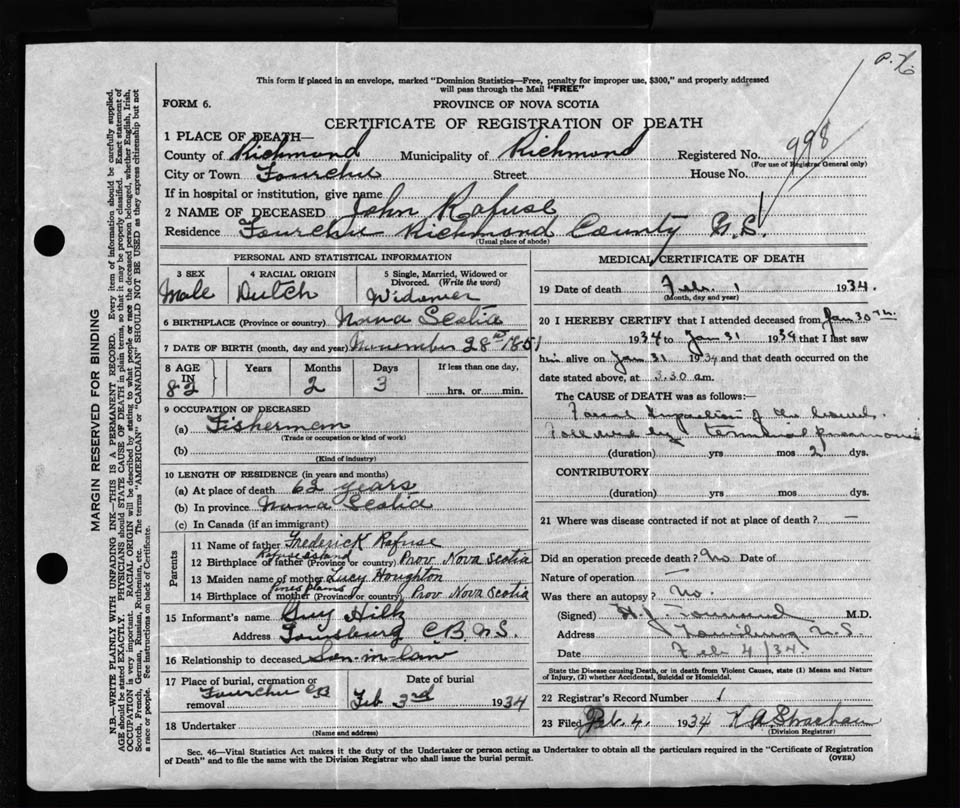 P.X.
This form if placed in an envelope, marked "Dominion Statistics—Free, penalty for improper use, $300," and properly addressed
will pass through the Mail "FREE"
FORM 6.
PROVINCE OF NOVA SCOTIA
CERTIFICATE OF REGISTRATION OF DEATH
1 PLACE OF DEATH—
County of Richmond Municipality of Richmond Registered No. 998
(For use of Registrar General only)
City or Town Fourchu Street House No.
If in hospital or institution, give name
2 NAME OF DECEASED John Rafuse
Residence Fourchu Richmond County
(Usual place of abode)
PERSONAL AND STATISTICAL INFORMATION
3 SEX 4 RACIAL ORIGIN 5 Single, Married, Widowed or Divorced. (Write the word)
Male Dutch Widower
6 BIRTHPLACE (Province or country) Nova Scotia
7 DATE OF BIRTH (month, day and year) November 28th 1851
8 AGE IN Years Months Days If less than one day,
82 2 3 hrs. or min.
9 OCCUPATION OF DECEASED
(a) Fisherman
(Trade or occupation or kind of work)
(b)
(Kind of industry)
10 LENGTH OF RESIDENCE (in years and months)
(a) At place of death 62 years
(b) In province Nova Scotia
(c) In Canada (if an immigrant)
Parents
11 Name of father Frederick Rafuse
12 Birthplace of father (Province or country) Rafuse Island Prov Nova Scotia
13 Maiden name of mother Lucy Houghton
14 Birthplace of mother (Province or country) Prov Nova Scotia
15 Informant's name Guy Hiltz
Address Louisburg C.B. N.S.
16 Relationship to deceased Son-in-law
17 Place of burial, cremation or removal Fourchu CB Date of burial Feb 3rd 1934
18 Undertaker
(Name and address)
MEDICAL CERTIFICATE OF DEATH
19 Date of death Feb. 1 1934.
(Month, day and year)
20 I HEREBY CERTIFY that I attended deceased from Jan 30th.
1934 to Jan 31 1934 that I last saw
him alive on Jan 31 1934 and that death occurred on
date stated above, at 3.30 am.
The CAUSE of DEATH was as follows:—
Faecal Impaction of the bowel.
Followed by terminal pneumonia
(duration) yrs mos 2 dys.
CONTRIBUTORY
(duration) yrs. mos dys.
21 Where was disease contracted if not at place of death? —
Did an operation precede death? No Date of
Nature of operation —
Was there an autopsy? No.
(Signed) H.J. M.D.
Address Louisburg N.S.
Date Feb 4/34
State the Disease causing Death, or in death from Violent Causes, state (1) Means and Nature
of Injury, (2) whether Accidental, Suicidal or Homicidal.
22 Registrar's Record Number 1
23 Filed Feb. 4. 1934 K A Strachan
(Division Registrar)
Sec. 46—Vital Statistics Act makes it the duty of the Undertaker or person acting as Undertaker to obtain all the particulars required in the "Certificate of Registration
of Death" and to file the same with the Division Registrar who shall issue the burial permit.
(OVER)
MARGIN RESERVED FOR BINDING
N.B.—WRITE PLAINLY WITH UNFADING INK—THIS IS A PERMANENT RECORD. Every item of information should be carefully supplied.
AGE should be stated EXACTLY. PHYSICIANS should STATE CAUSE OF DEATH in plain terms, so that it may be properly classified. Exact statement of
OCCUPATION is very important. RACIAL ORIGIN will be described by stating to what people or race the deceased person belonged, whether English, Irish,
Scotch, French, German, Russian, Ruthenian, etc. The terms "AMERICAN" or "CANADIAN" SHOULD NOT BE USED as they express citizenship but not
a race or people. See instructions on back of Certificate.